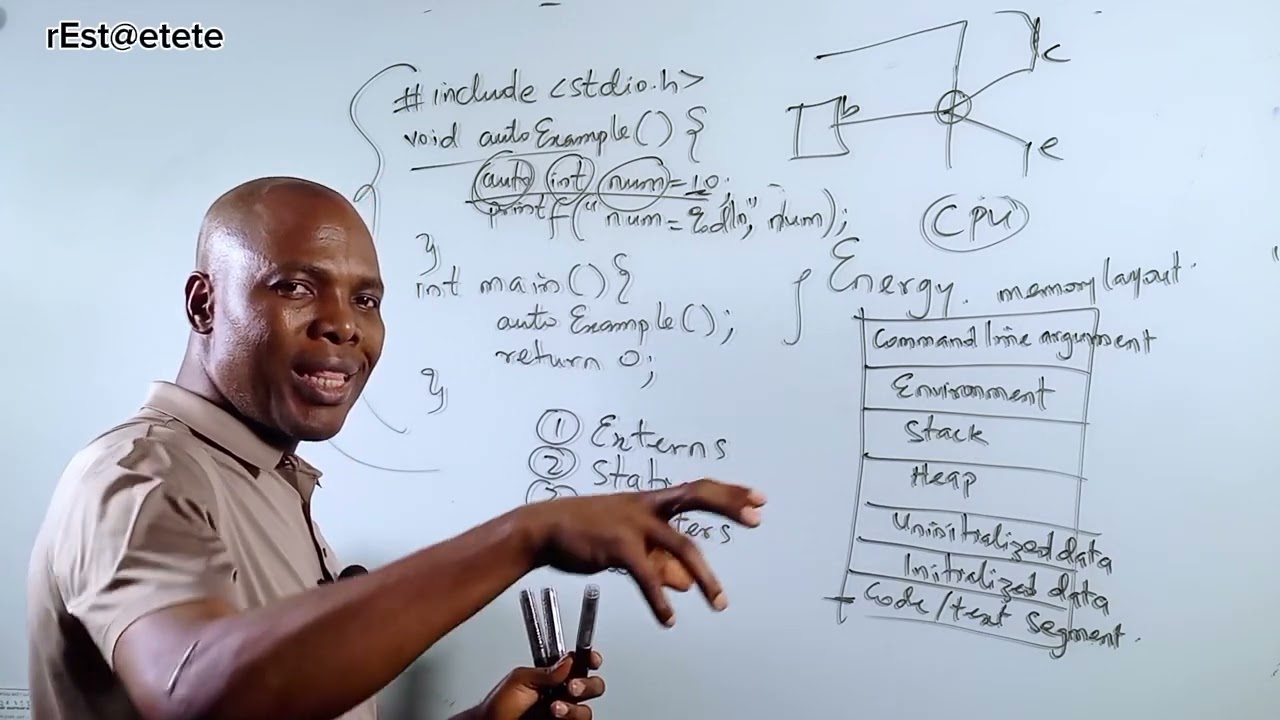 rEst@etete
#include <stdio.h>
void autoExample() {
auto int num = 10;
printf("num = %d\n", num);
}
int main() {
autoExample();
return 0;
}
1 Externs
2 Stati
3
ters
c
b
e
CPU
Energy. memory layout.
Command line argument
Environment
Stack
Heap
Uninitialized data
Initialized data
Code/text segment.